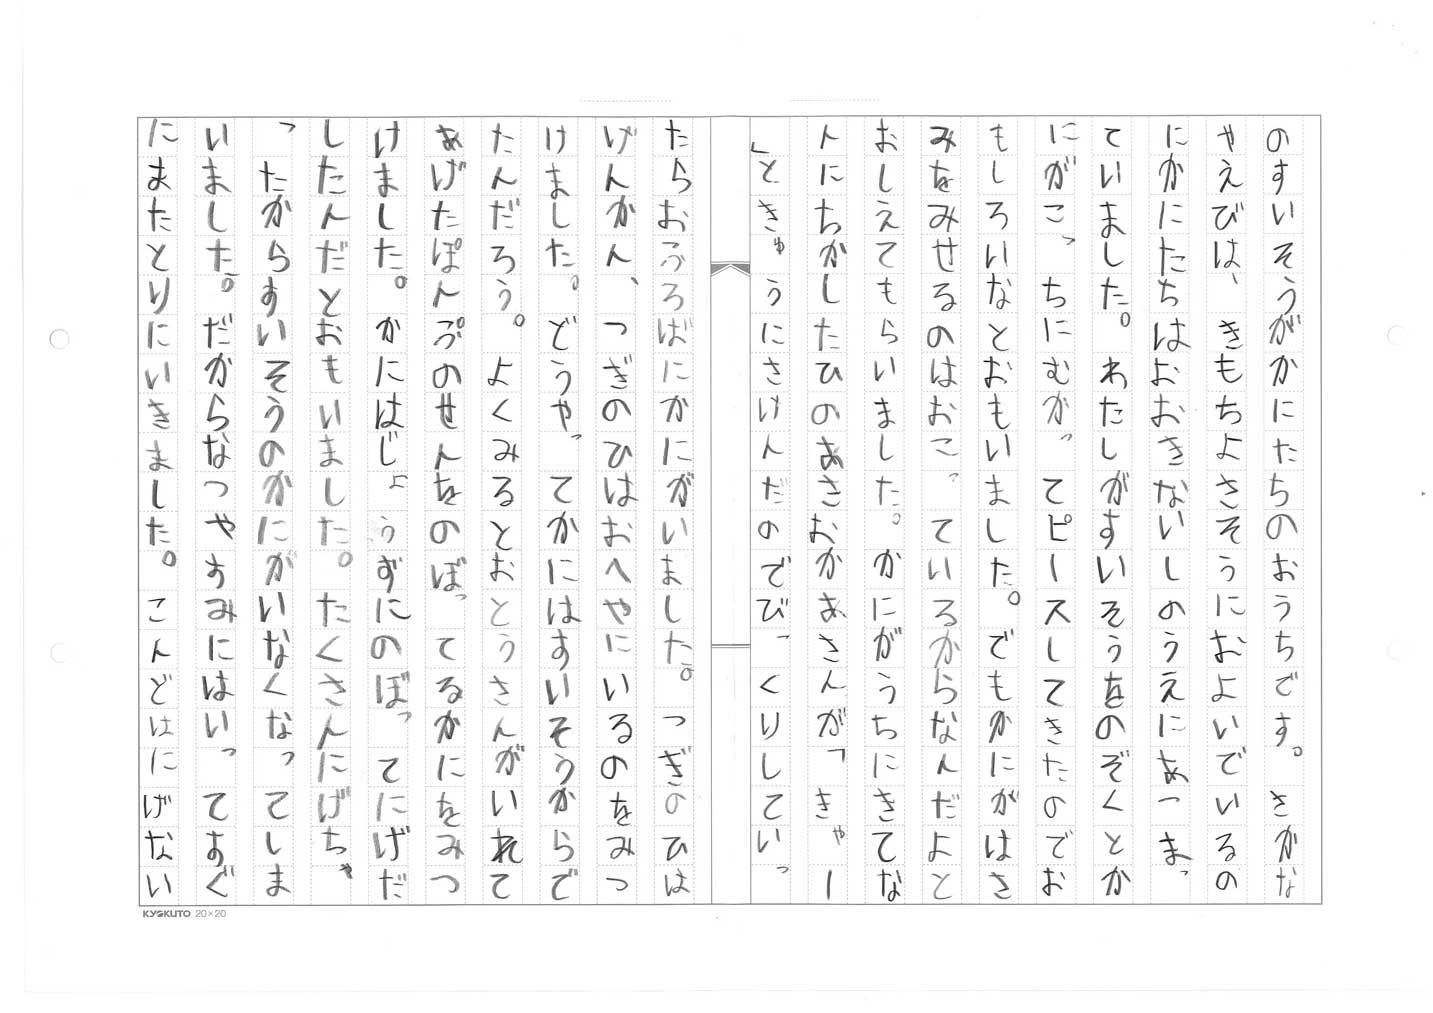 のすいそうがかにたちのおうちです。さかな
やえびは、きもちよさそうにおよいでいるの
にかにたちはおおきないしのうえにあつまっ
ていました。わたしがすいそうをのぞくとか
にがこっちにむかってピースしてきたのでお
もしろいなとおもいました。でもかにがはさ
みをみせるのはおこっているからなんだよと
おしえてもらいました。かにがうちにきてな
んにちかしたひのあさおかあさんが「きゃー
」ときゅうにさけんだのでびっくりしてい っ
たらおふろばにかにがいました。つぎのひは
げんかん、つぎのひはおへやにいるのをみつ
けました。どうやってかにはすいそうからで
たんだろう。よくみるとおとうさんがいれて
あげたぽんぷのせんをのぼってるかにをみつ
けました。かにはじょうずにのぼってにげだ
したんだとおもいました。たくさんにげちゃ
ったからすいそうのかにがいなくなってしま
いました。だからなつやすみにはいってすぐ
にまたとりにいきました。こんどはにげない
KYOKUTO 20×20